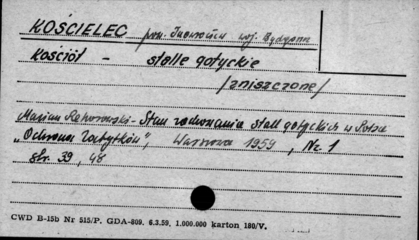 KOŚCIELEC pow. Inowrocław woj. Bydgoszcz
Kościół - stalle gotyckie
/zniszczone/
Marian Rehorowski - Stan zachowania stall gotyckich w Polsce
"Ochrona Zabytków", Warszawa 1959, Nr. 1
str. 39, 48
CWD B-15b Nr 515/P. GDA-809. 6.3.59. 1.000.000 karton 180/V.